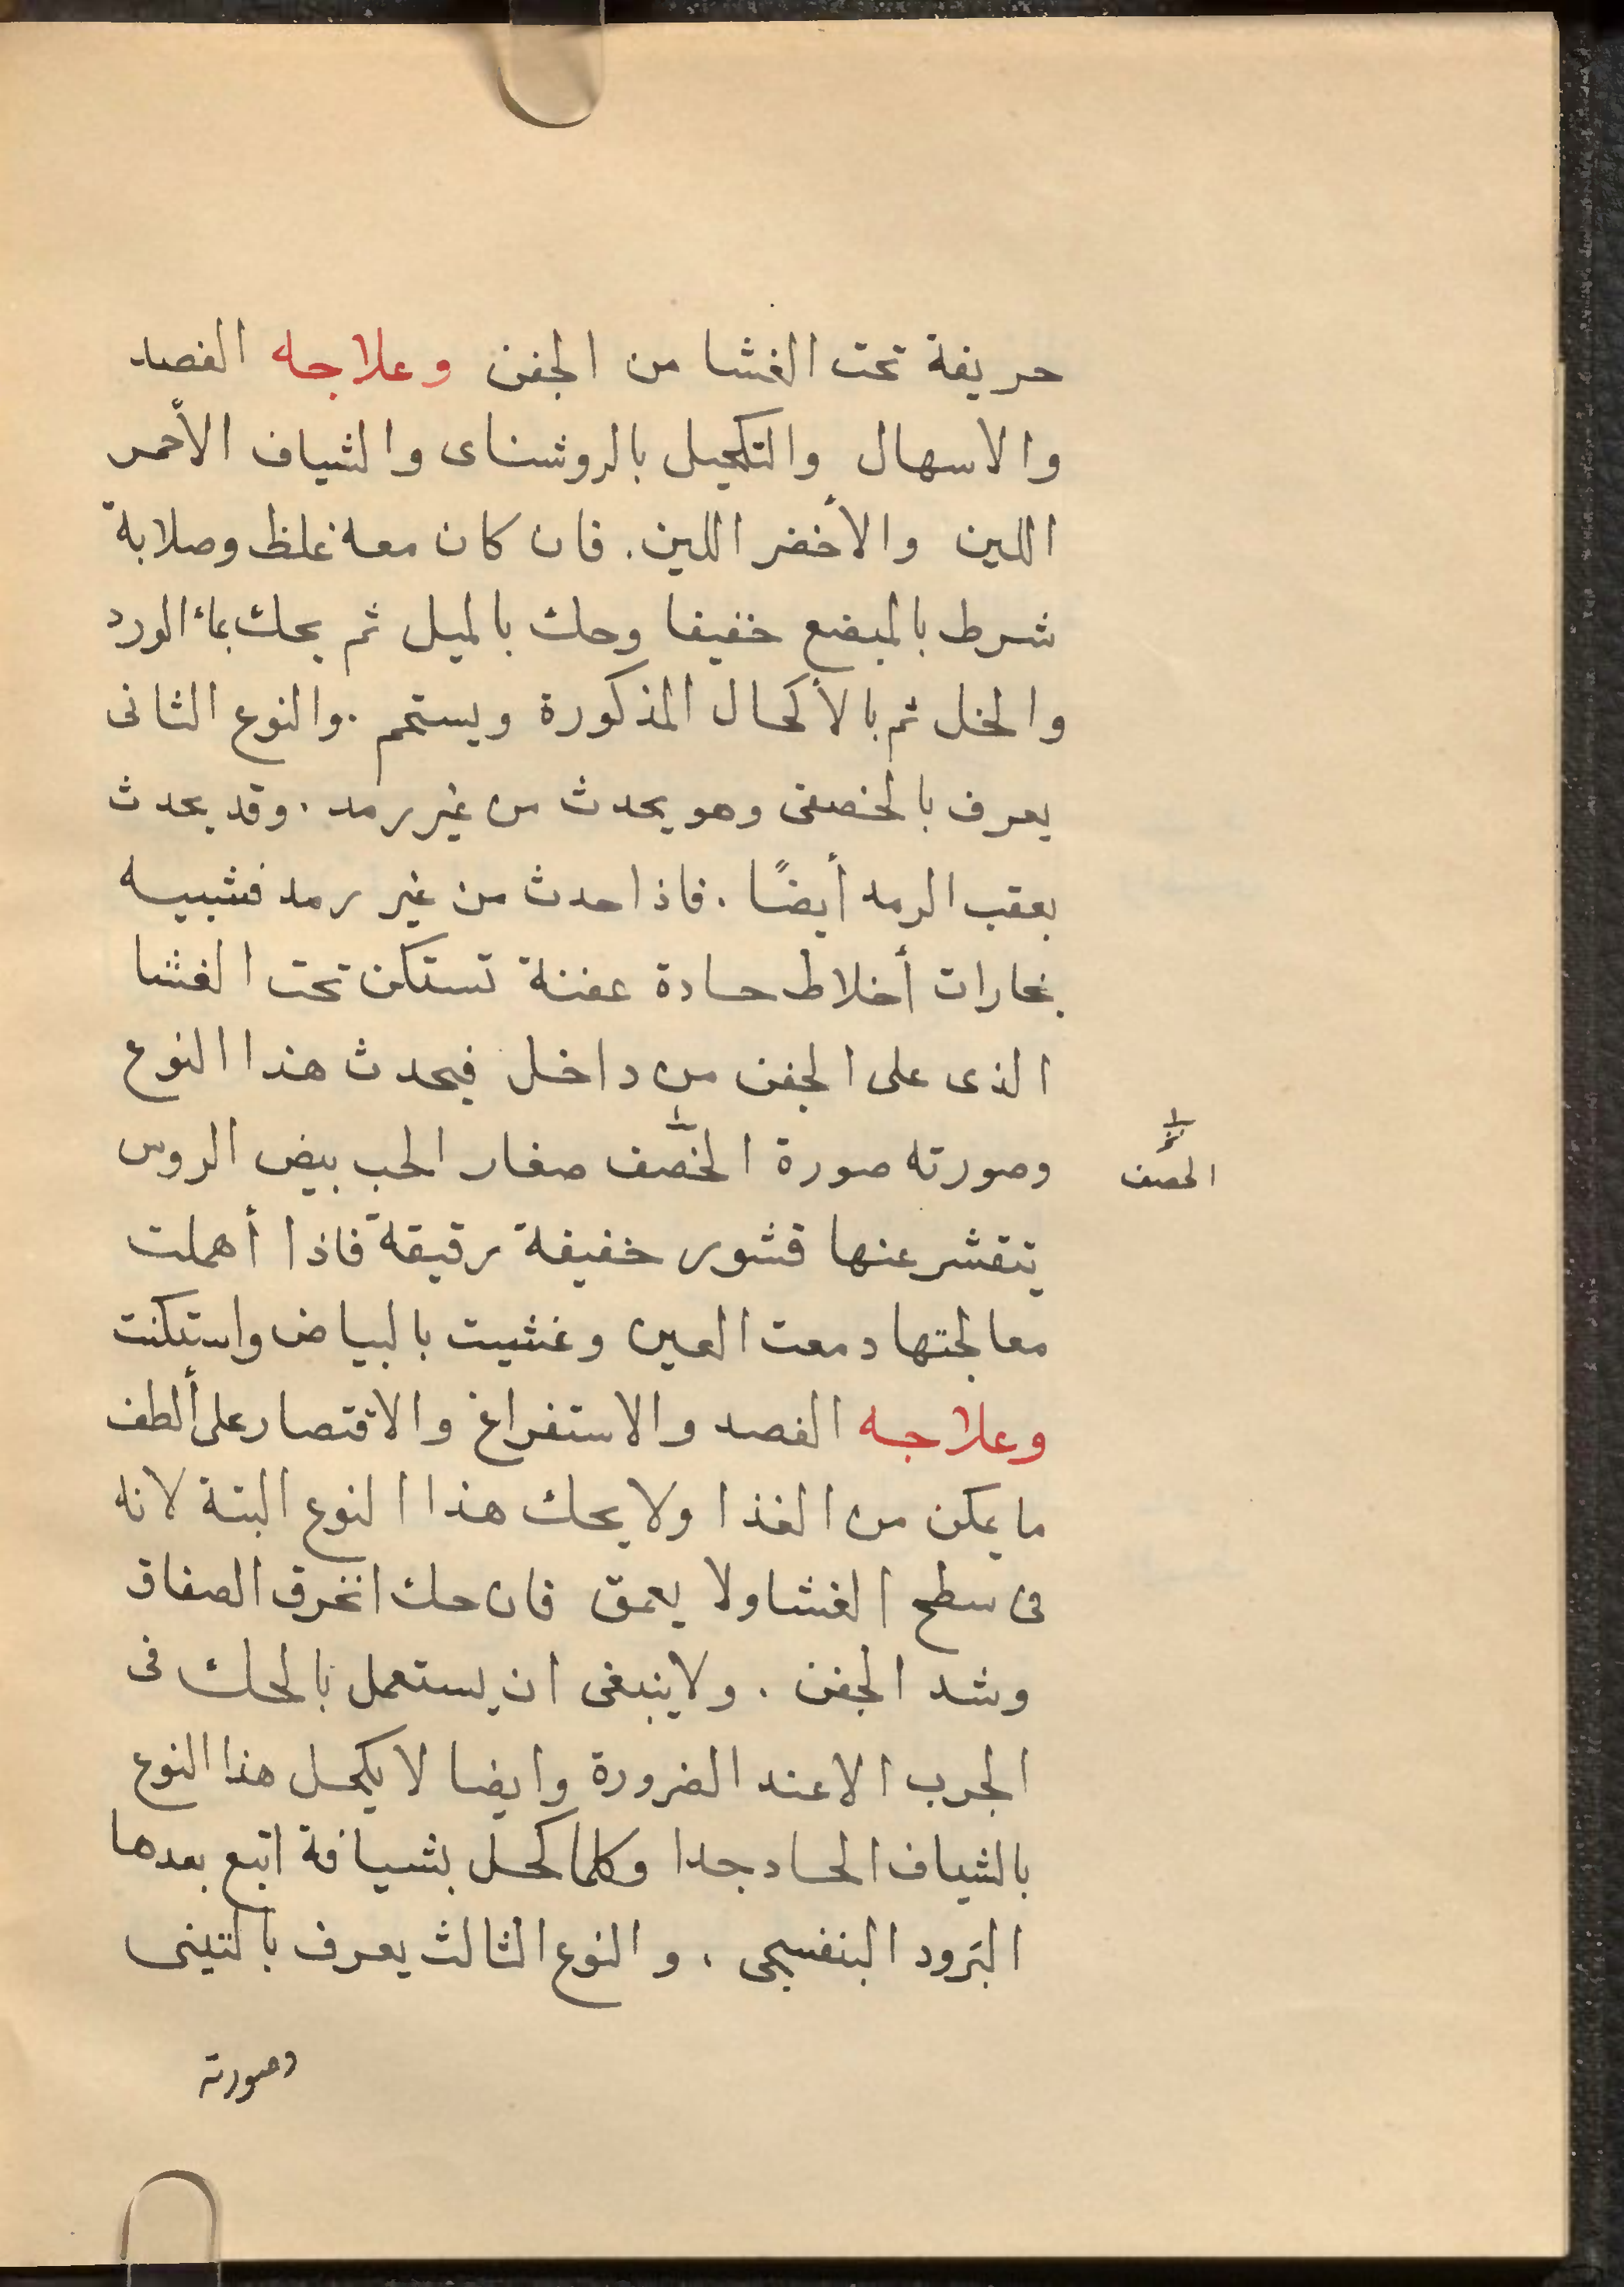 حريفة تحت الغشا من الجفن وعلاجه الفصد
والاسهال والتكحيل بالروشناى والشياف الأحمر
اللين والأخضر اللين. فان كان معه غلظ وصلابة
شرط بالمبضع خفيفا وحك بالميل ثم يحك بماء الورد
والخل ثم بالأكحال المذكورة ويستحم. والنوع الثانى
يعرف بالخصفى وهو يحدث من غير رمد. وقد يحدث
بعقب الرمد أيضًا. فاذا حدث من غير رمد فسببه
بخارات أخلاط حادة عفنة تستكن تحت الغشا
الذى على الجفن من داخل فيحدث هذا النوع
وصورته صورة الخصف صغار الحب بيض الروس
الحصف
تتقشر عنها قشور خفيفة رقيقة فاذا أهملت
معالجتها دمعت العين وغشيت بالبياض واستكنت
وعلاجه الفصد والاستفراغ والاقتصار على ألطف
ما يمكن من الغذا ولا يحك هذا النوع البتة لانه
فى سطح الغشا ولا يعمق فان حك انخرق الصفاق
وشد الجفن. ولا ينبغى ان يستعمل بالحك فى
الجرب الا عند الضرورة وايضا لا يكحل هذا النوع
بالشياف الحاد جدا وكلما كحل بشيافة اتبع بعدها
البَرود البنفسجى. والنوع الثالث يعرف بالتينى
وصورته